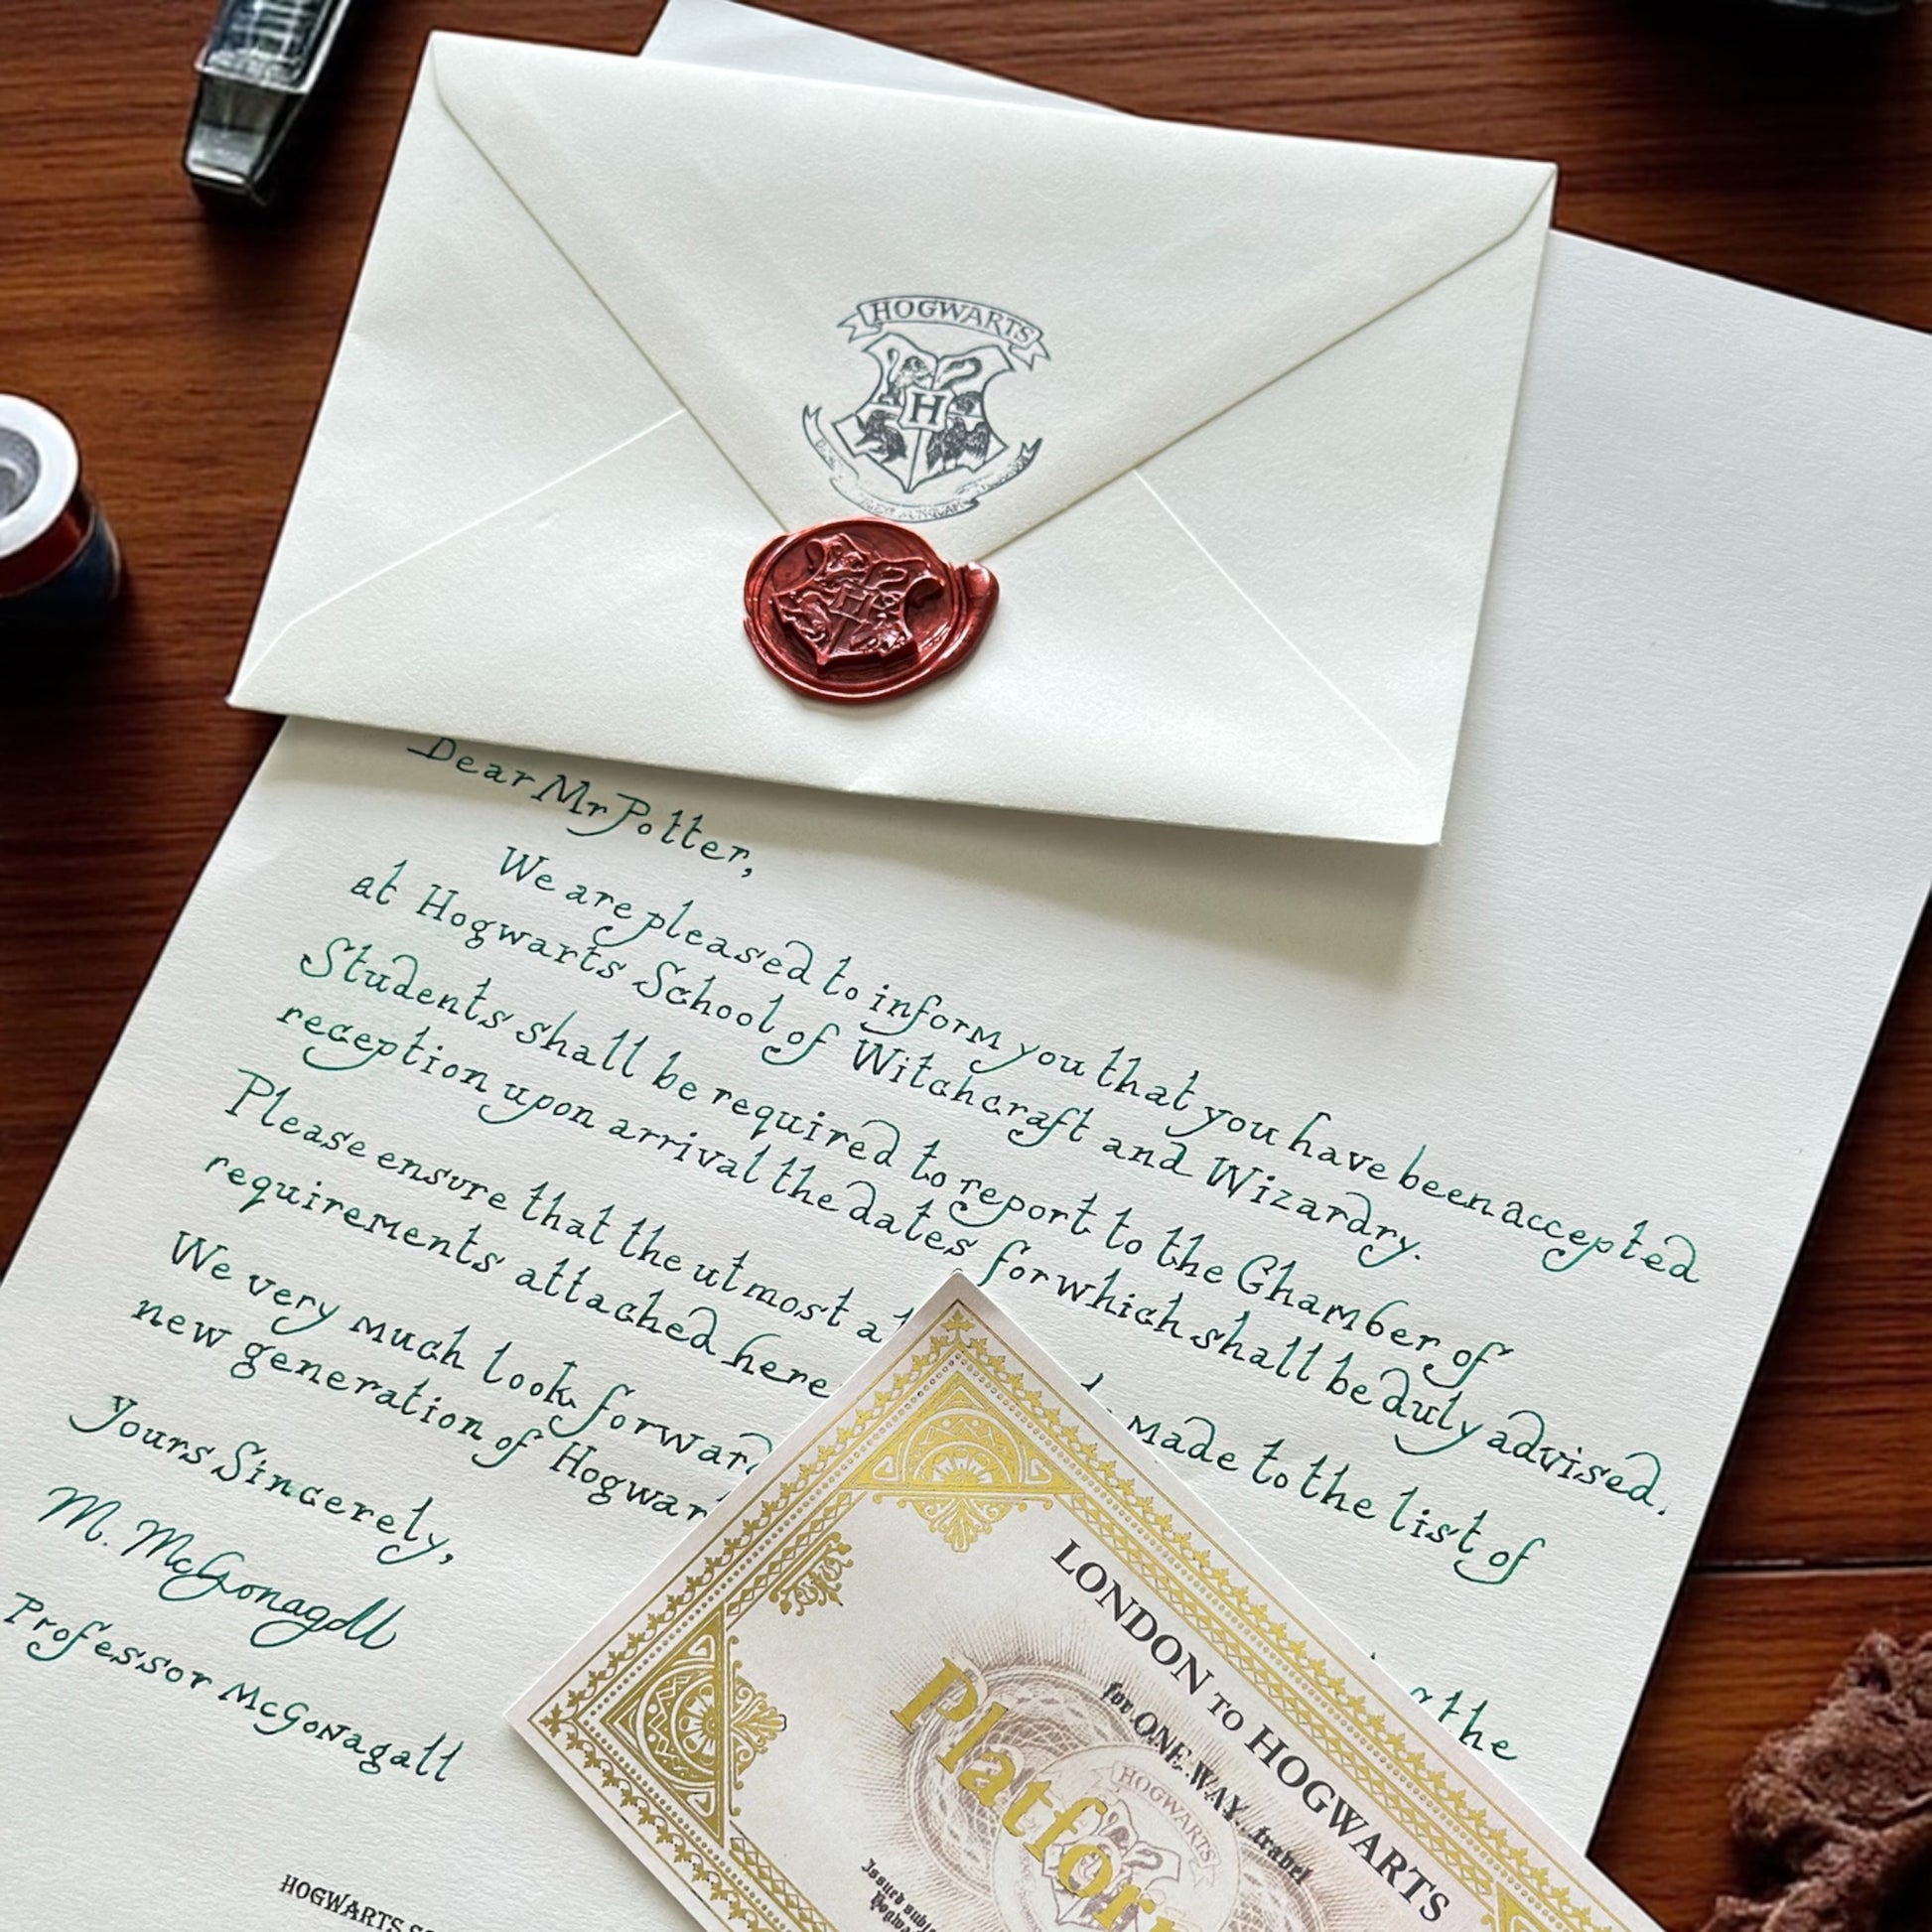 HOGWARTS
H
H
Dear Mr Potter,
We are pleased to inform you that you have been accepted
at Hogwarts School of Witchcraft and Wizardry.
Students shall be required to report to the Chamber of
reception upon arrival the dates for which shall be duly advised.
Please ensure that the utmost at made to the list of
requirements attached here
We very much look forward the
new generation of Hogwar
Yours Sincerely,
M. McGonagall
Professor McGonagall
HOGWARTS
LONDON TO HOGWARTS
for ONE WAY travel
Platform
HOGWARTS
Issued subj
Hogwa